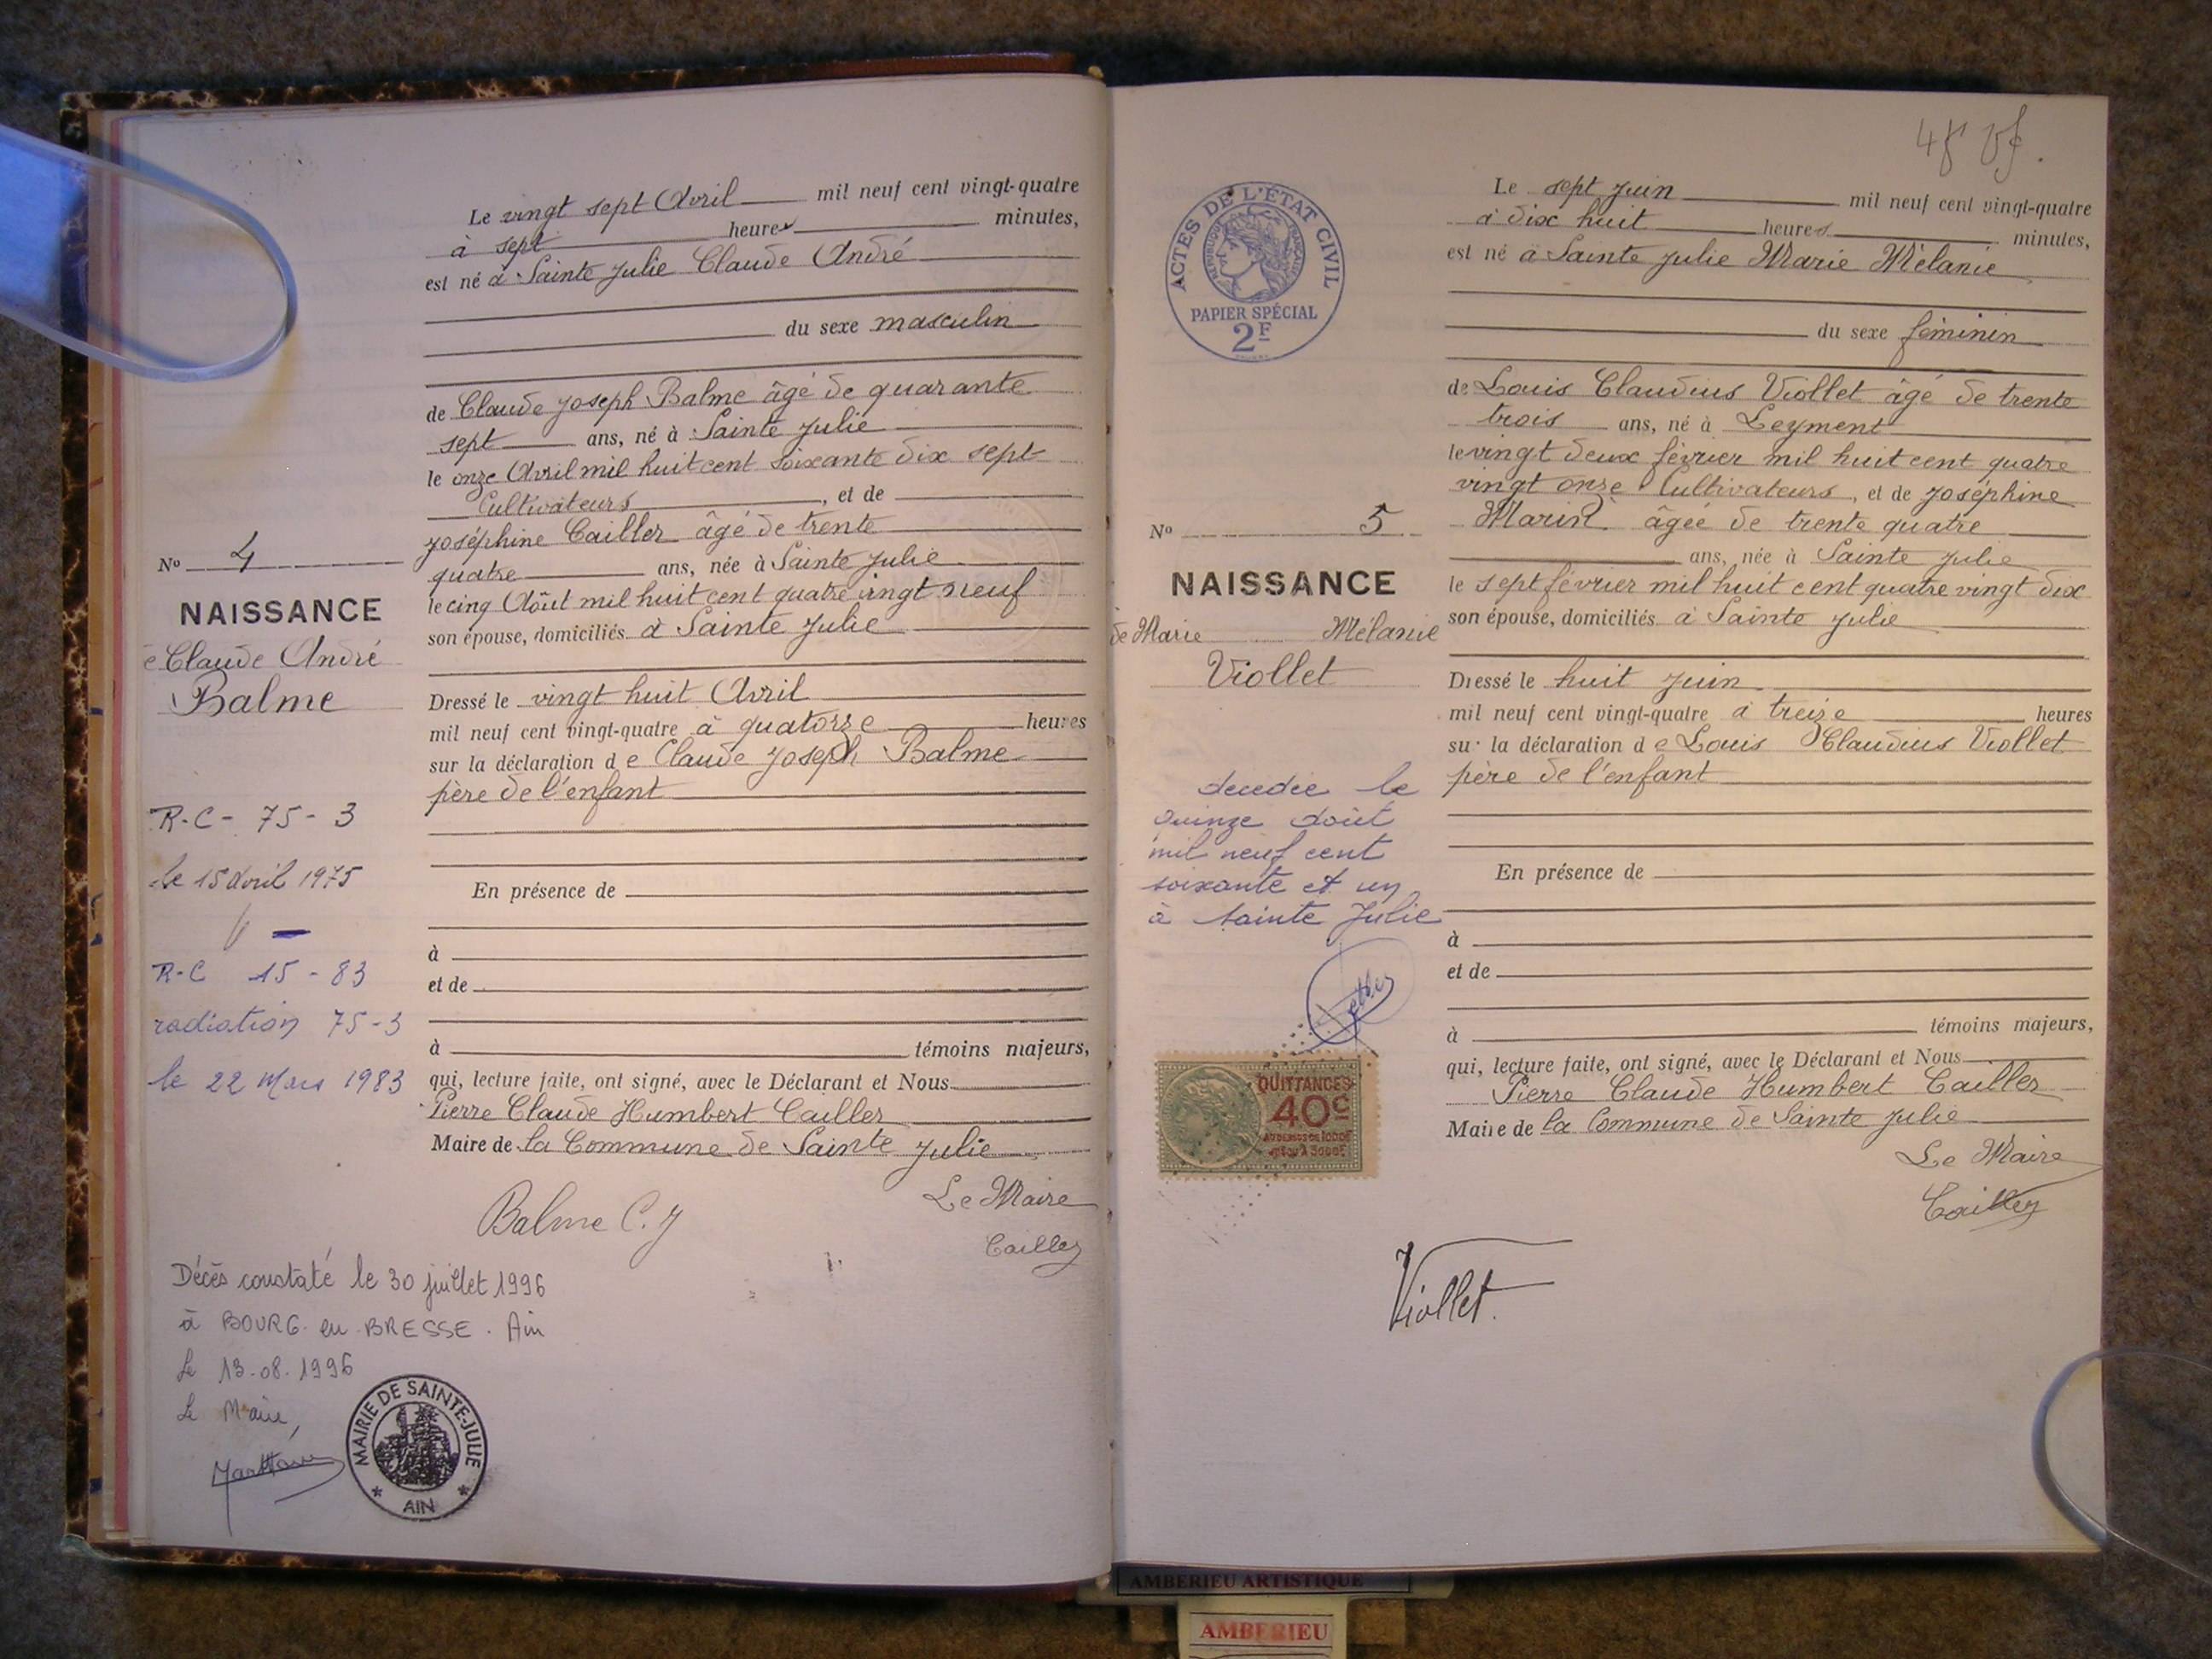 Le vingt sept Avril mil neuf cent vingt-quatre
à sept heures minutes,
est né à Sainte Julie Claude André
du sexe masculin
de Claude Joseph Balme âgé de quarante
sept ans, né à Sainte Julie
le onze Avril mil huit cent soixante dix sept
Cultivateurs, et de
Joséphine Cailler âgé de trente
quatre ans, née à Sainte Julie
le cinq Août mil huit cent quatre vingt neuf
son épouse, domiciliés à Sainte Julie
Dressé le vingt huit Avril
mil neuf cent vingt-quatre à quatorze heures
sur la déclaration de Claude Joseph Balme
père de l'enfant
En présence de
à
et de
à témoins majeurs,
qui, lecture faite, ont signé, avec le Déclarant et Nous
Pierre Claude Humbert Cailler
Maire de la Commune de Sainte Julie
Le Maire
Balme C. J
Cailler
No 4
NAISSANCE
e Claude André
Balme
R-C- 75-3
le 15 Avril 1975
R-C 15-83
radiation 75-3
le 22 Mars 1983
Décès constaté le 30 juillet 1996
à BOURG en BRESSE. Ain
Le 13.08.1996
Le Maire,
MAIRIE DE SAINTE-JULIE
* AIN *
ACTES DE L'ÉTAT CIVIL
RÉPUBLIQUE FRANÇAISE
PAPIER SPÉCIAL
2F
Le sept Juin mil neuf cent vingt-quatre
à dix huit heures minutes,
est né à Sainte Julie Marie Mélanie
du sexe féminin
de Louis Claudius Viollet âgé de trente
trois ans, né à Leyment
le vingt deux février mil huit cent quatre
vingt onze Cultivateurs, et de Joséphine
Marin âgée de trente quatre
ans, née à Sainte Julie
le sept février mil huit cent quatre vingt dix
son épouse, domiciliés à Sainte Julie
Dressé le huit Juin
mil neuf cent vingt-quatre à treize heures
sur la déclaration de Louis Claudius Viollet
père de l'enfant
En présence de
à
et de
à témoins majeurs,
qui, lecture faite, ont signé, avec le Déclarant et Nous
Pierre Claude Humbert Cailler
Maire de la Commune de Sainte Julie
Le Maire
Cailler
Viollet.
No 5
NAISSANCE
de Marie Mélanie
Viollet
decedée le
quinze août
mil neuf cent
soixante et un
à Sainte Julie
QUITTANCES
40c
AU DESSUS DE 1000F
JUSQU'À 3000F
AMBERIEU ARTISTIQUE
AMBERIEU